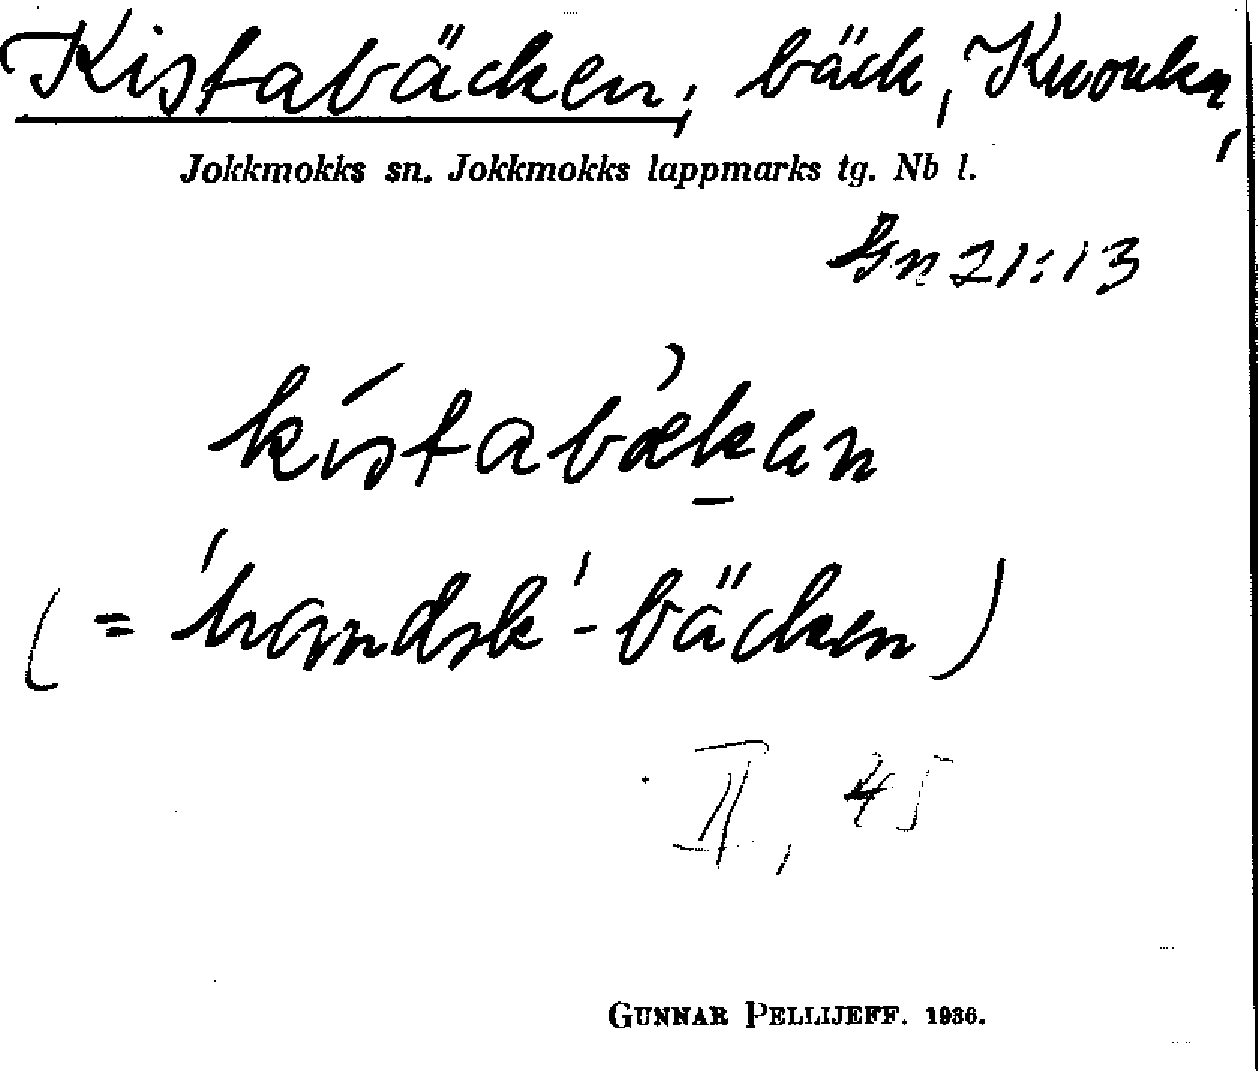 Kistabäcken, bäck, Kuouka,
Jokkmokks sn. Jokkmokks lappmarks tg. Nb l.
Gn 21:13
kistabækən
(= 'handsk'-bäcken)
II, 45
GUNNAR PELLIJEFF. 1936.